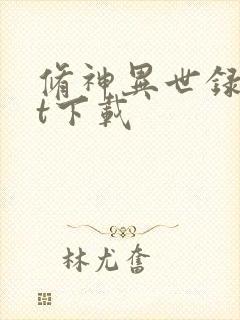 脩神異世録
t下載
林尤奮